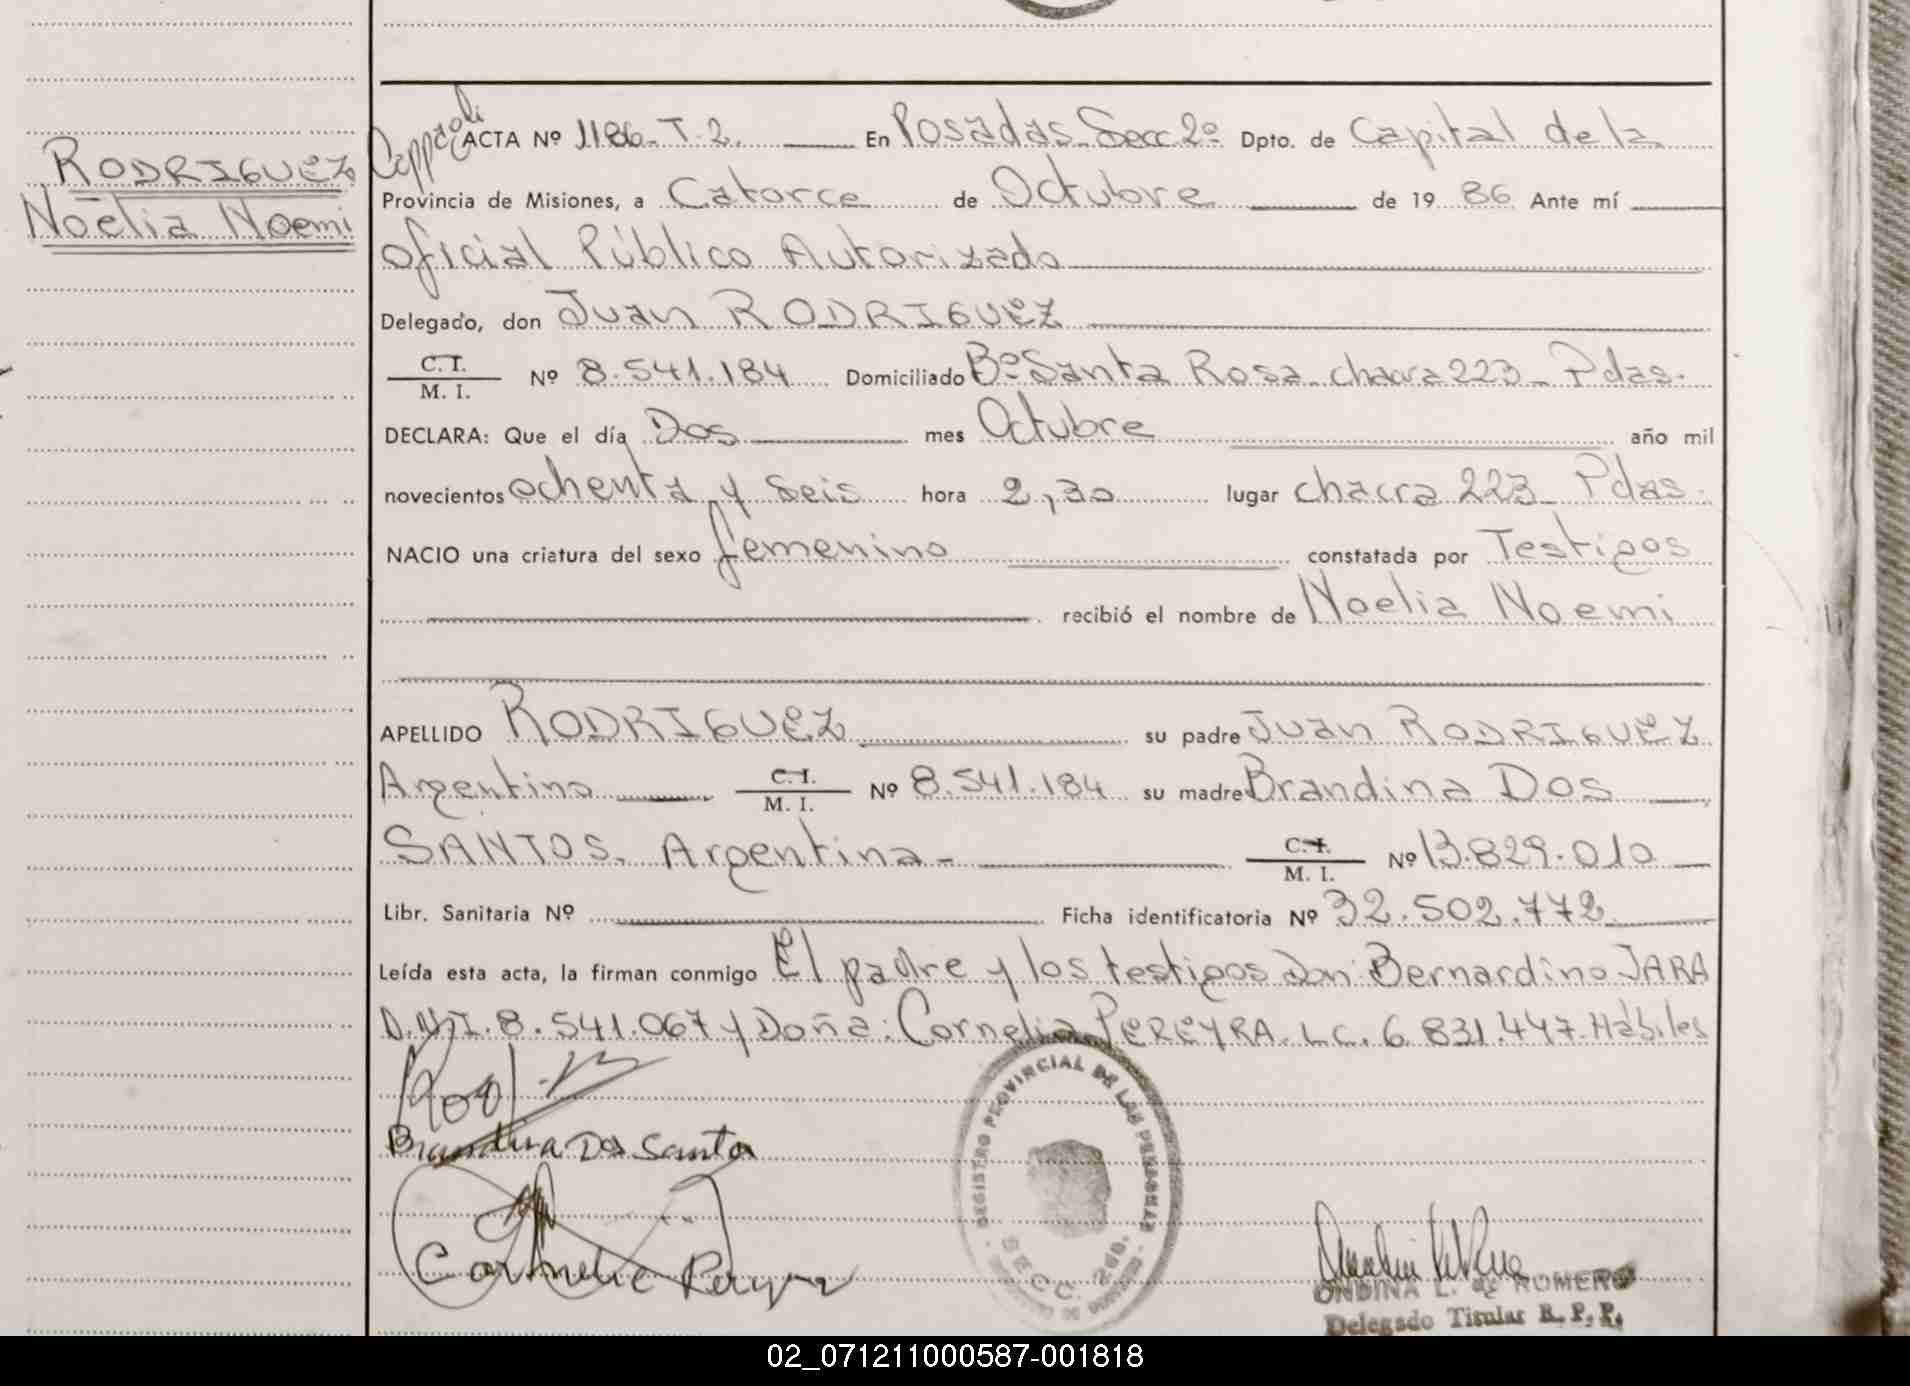 RODRIGUEZ
Noelia Noemi
ACTA Nº 1186-T-2. En Posadas Secc 2º Dpto. de Capital de la
Provincia de Misiones, a Catorce de Octubre de 19 86 Ante mí
Oficial Público Autorizado
Delegado, don Juan RODRIGUEZ
C. I.
M. I. Nº 8.541.184 Domiciliado Bº Santa Rosa chacra 223 - Pdas.
DECLARA: Que el día Dos mes Octubre año mil
novecientos ochenta y seis hora 2,30 lugar chacra 223 - Pdas.
NACIO una criatura del sexo femenino constatada por Testigos
recibió el nombre de Noelia Noemi
APELLIDO RODRIGUEZ su padre Juan RODRIGUEZ
Argentino C. I. M. I. Nº 8.541.184 su madre Brandina Dos
SANTOS. Argentina - C. I. M. I. Nº 13.829.010
Libr. Sanitaria Nº Ficha identificatoria Nº 32.502.772
Leída esta acta, la firman conmigo El padre y los testigos Don: Bernardino JARA
D.N.I. 8.541.067 y Doña: Cornelia PEREYRA. L.C. 6.831.447. Hábiles
Brandina Dos Santos
REGISTRO PROVINCIAL DE LAS PERSONAS
SECC. 2da.
ONDINA L. de ROMERO
Delegado Titular R. P. P.
02_071211000587-001818